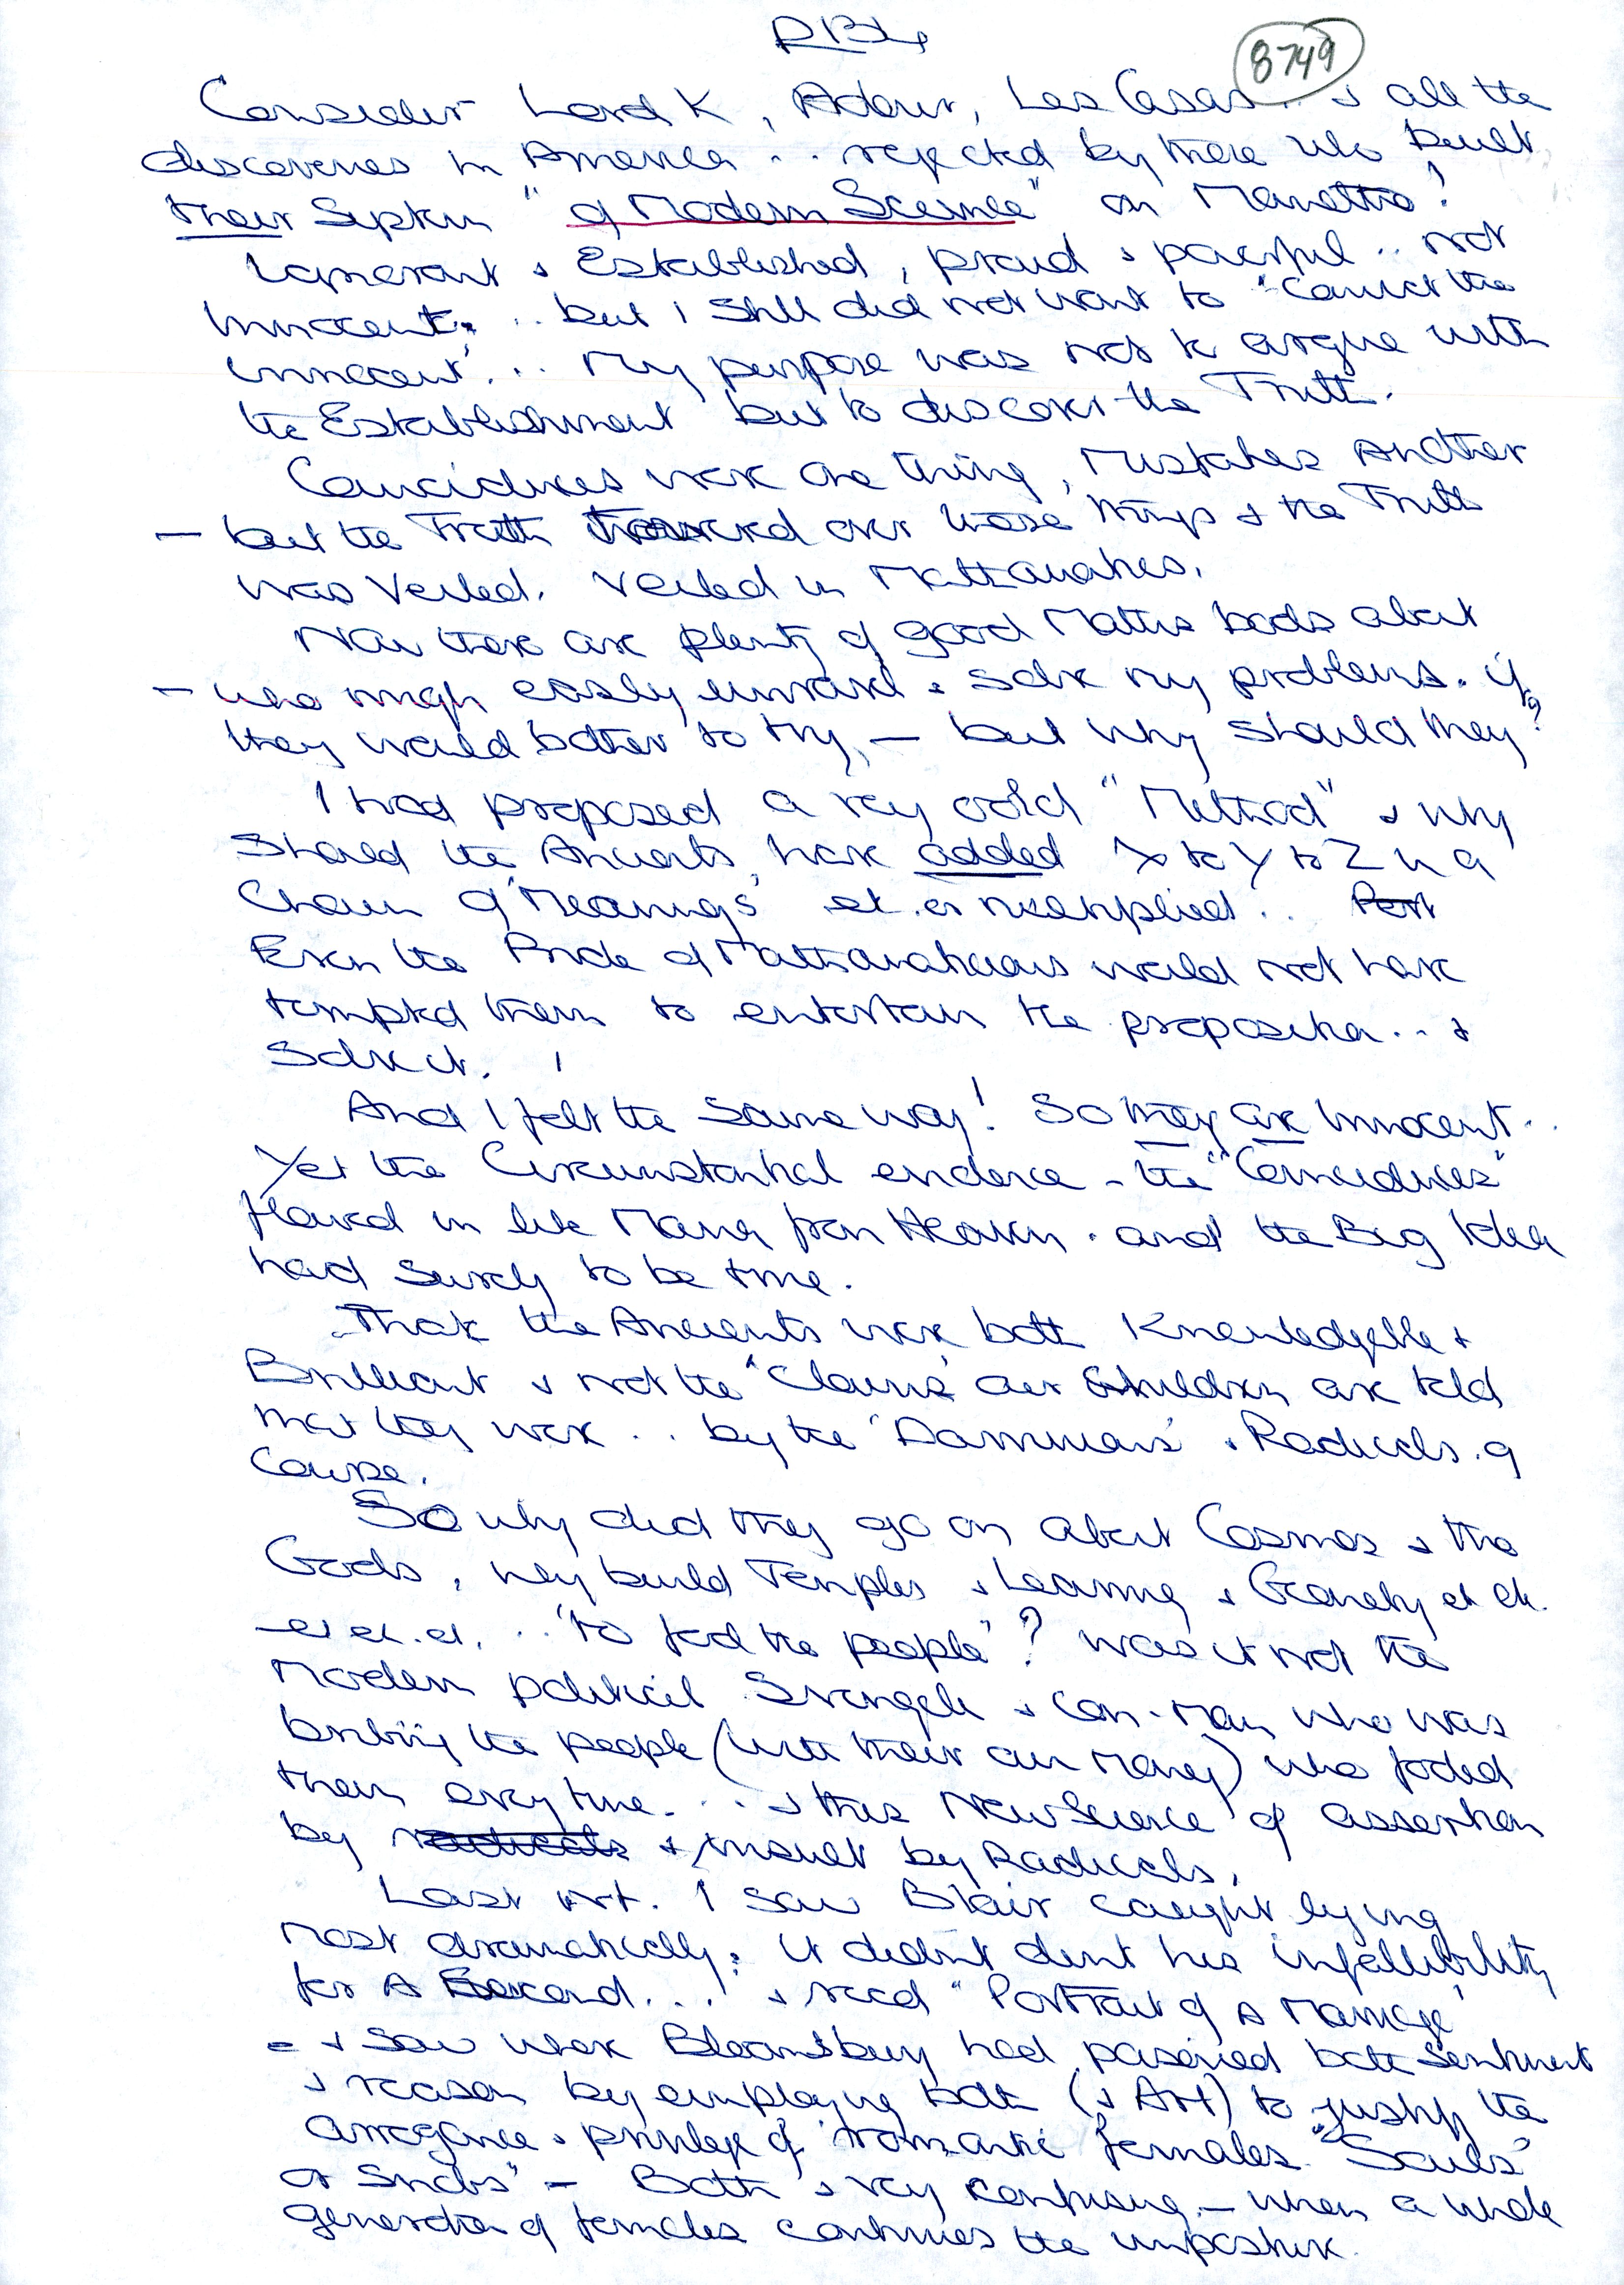 8749
Consider Lord K, Adair, Las Casas .. & all the
discoveries in America .. rejected by those who built
their System "of Modern Science" on Manetho!
Ignorant & Established, proud & powerful .. not
Innocent, .. but I still did not want to "Convict the
innocent' ... My purpose was not to argue with
the Establishment but to discover the Truth.
Coincidences were one thing, Mistakes Another
— but the Truth towered over those things & the Truth
was Veiled. Veiled in Mathematics.
Now there are plenty of good Maths bods about
— who might easily unravel & solve my problems. if
they would bother to try, — but why should they?
I had proposed a very odd "Method" & why
should the Ancients have added X to Y to Z in a
Chain of 'Meanings' et. or multiplied ..
Even the Pride of Mathematicians would not have
tempted them to entertain the proposition .. &
Solve it.
And I felt the same way! So they are Innocent ..
Yet the Circumstantial evidence - the "Coincidences"
flowed in like Manna from Heaven. and the Big Idea
had surely to be true.
That the Ancients were both Knowledgeable &
Brilliant & not the "Clowns' our Children are told
that they were .. by the 'Darwinians' & Radicals. of
Course.
So why did they go on about Cosmos & the
Gods, why build Temples & Learning & Geometry et et.
— et et. et. .. "to fool the people"? Was it not the
Modern political & Con-Man who was
bribing the people (with their own Money) who fooled
them every time. .. & this New Science of assertion
by & insult by Radicals.
Last nt. I saw Blair caught lying
most dramatically; it didnt dent his infallibility
for A Second ... & read "Portrait of A Marriage'
= & saw where Bloomsbury had poisoned both Sentiment
& reason by employing both (& Art) to justify the
arrogance & privilege of 'romantic females. "Souls"
or Snobs" - Both & very confusing, — when a whole
generation of females continues the imposture.